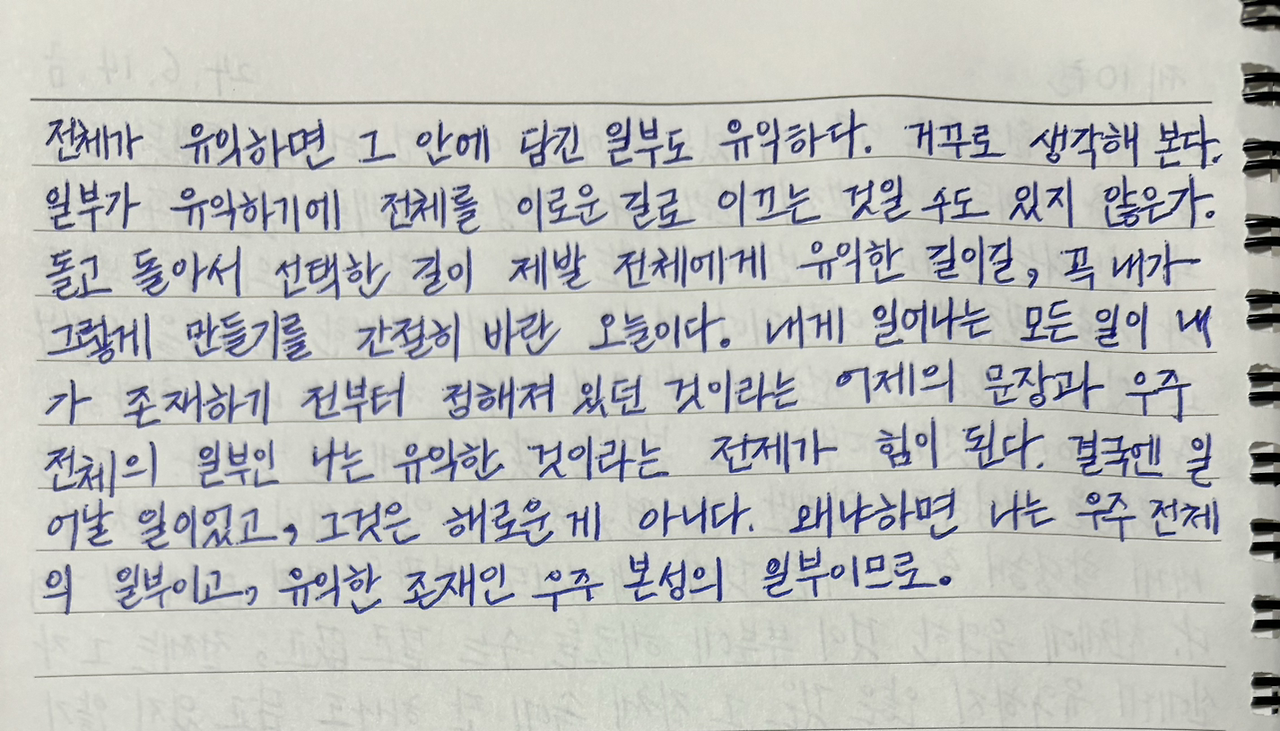 전체가 유익하면 그 안에 담긴 일부도 유익하다. 거꾸로 생각해 본다.
일부가 유익하기에 전체를 이로운 길로 이끄는 것일 수도 있지 않은가.
돌고 돌아서 선택한 길이 제발 전체에게 유익한 길이길, 꼭 내가
그렇게 만들기를 간절히 바란 오늘이다. 내게 일어나는 모든 일이 내
가 존재하기 전부터 정해져 있던 것이라는 어제의 문장과 우주
전체의 일부인 나는 유익한 것이라는 전제가 힘이 된다. 결국엔 일
어날 일이었고, 그것은 해로운 게 아니다. 왜냐하면 나는 우주 전체
의 일부이고, 유익한 존재인 우주 본성의 일부이므로.